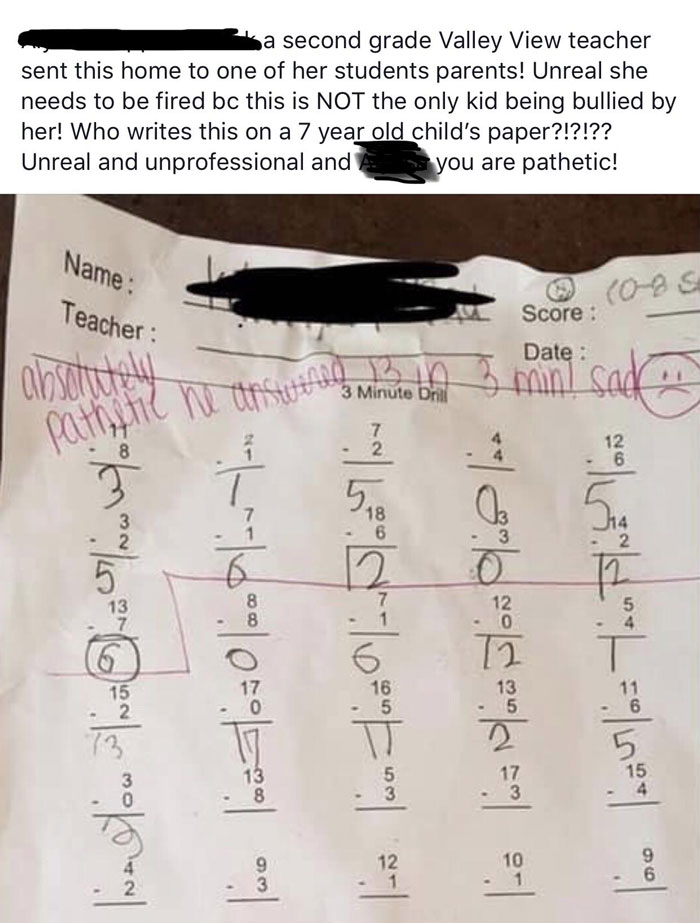 a second grade Valley View teacher
sent this home to one of her students parents! Unreal she
needs to be fired bc this is NOT the only kid being bullied by
her! Who writes this on a 7 year old child's paper?!?!??
Unreal and unprofessional and you are pathetic!
Name:
Teacher:
10-8
Score:
Date:
absolutely
pathetic he answered 13 in 3 min! sad
3 Minute Drill
11 2 7 4 12
- 8 - 1 - 2 - 4 - 6
3 1 5 0 5
3 7 18 3 14
- 2 - 1 - 6 - 3 - 2
5 6 12 0 12
13 8 7 12 5
- 7 - 8 - 1 - 0 - 4
6 0 6 12 1
15 17 16 13 11
- 2 - 0 - 5 - 5 - 6
13 17 11 2 5
3 13 5 17 15
- 0 - 8 - 3 - 3 - 4
4 9 12 10 9
- 2 - 3 - 1 - 1 - 6